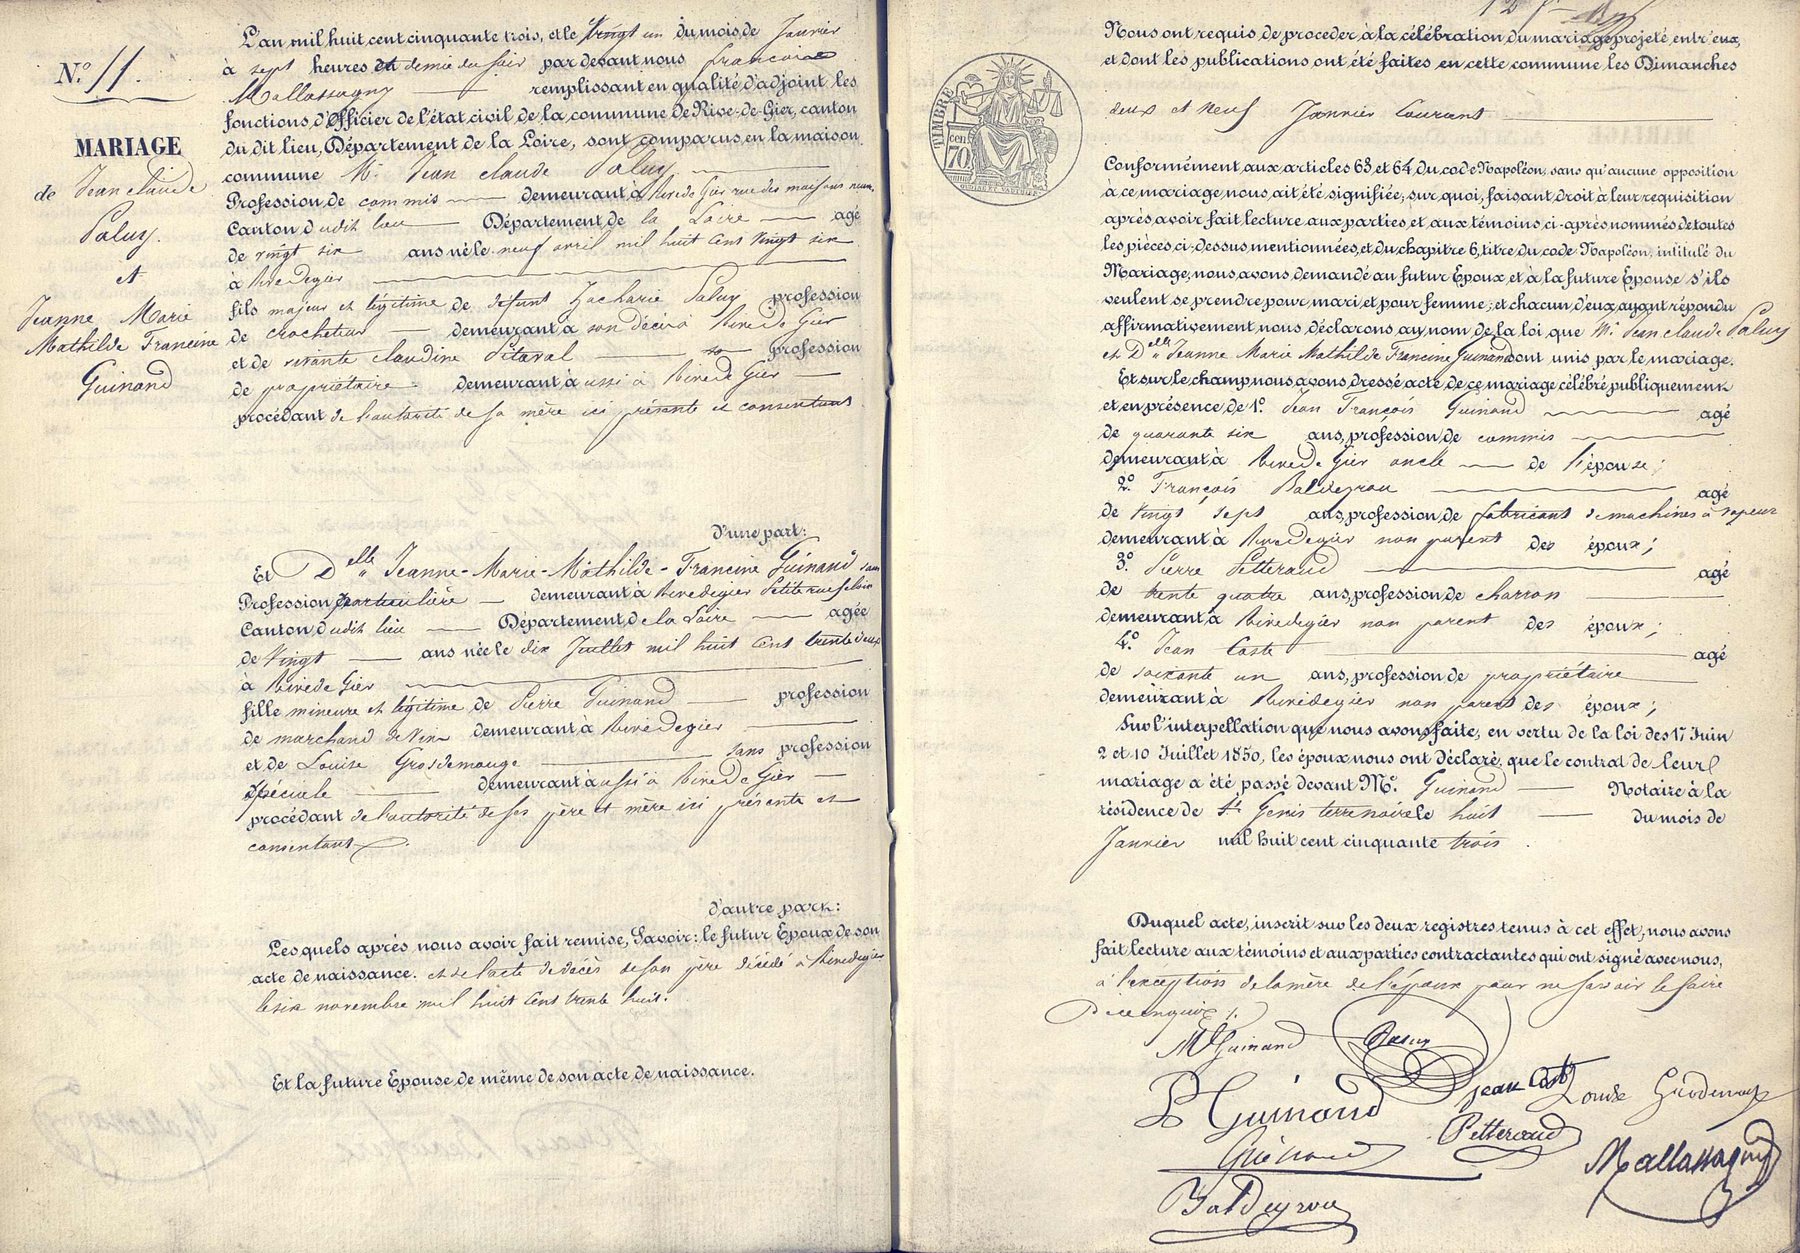 N.° 11.
MARIAGE
de Jean claude
Paluy.
et
Jeanne Marie
Mathilde Francine
Guinand
L'an mil huit cent cinquante trois, et le vingt un du mois de Janvier
à sept heures et demie du soir par devant nous francois
Mallassagny remplissant en qualité d'adjoint les
fonctions d'Officier de l'état civil de la commune de Rive-de-Gier, canton
du dit lieu, Département de la Loire, sont comparus en la maison
commune Mr. Jean claude Paluy
Profession de commis demeurant à Rive de Gier rue des maisons neuves
Canton dudit lieu Département de la Loire agé
de vingt six ans né le neuf avril mil huit cent vingt six
à Rivedegier
fils majeur et légitime de defunt Zacharie Paluy profession
de crocheteur demeurant à son décès à Rive de Gier
et de vivante claudine Pitaval profession
de propriétaire demeurant à aussi à Rive de Gier
procédant de l'autorité de sa mère ici présente et consentant
d'une part:
Et Delle Jeanne-Marie-Mathilde-Francine Guinand sans
Profession particulière demeurant à Rivedegier Petite rue
Canton dudit lieu Département de la Loire agée
de Vingt ans née le dix Juillet mil huit cent trente deux
à Rive de Gier
fille mineure et légitime de Pierre Guinand profession
de marchand de vin demeurant à Rivedegier
et de Louise Grosdemouge sans profession
spéciale demeurant à aussi à Rive de Gier
procédant de l'autorité de ses père et mère ici présents et
consentants.
d'autre part:
Lesquels après nous avoir fait remise, Savoir: le futur Epoux de son
acte de naissance. et de l'acte de décès de son père décédé à Rivedegier
le six novembre mil huit cent trente huit.
Et la future Epouse de même de son acte de naissance.
TIMBRE
70 cent
Nous ont requis de procéder à la célébration du mariage projeté entr'eux,
et dont les publications ont été faites en cette commune les Dimanches
deux et neuf Janvier courant
Conformément aux articles 63 et 64 du code Napoléon, sans qu'aucune opposition
à ce mariage nous ait été signifiée; sur quoi, faisant droit à leur requisition
après avoir fait lecture aux parties et aux témoins ci-après nommés de toutes
les pièces ci-dessus mentionnées, et du chapitre 6, titre du code Napoléon, intitulé du
Mariage, nous avons demandé au futur Epoux et à la future Epouse s'ils
veulent se prendre pour mari et pour femme; et chacun d'eux ayant répondu
affirmativement, nous déclarons au nom de la loi que Mr. Jean claude Paluy
et Delle Jeanne Marie Mathilde Francine Guinand sont unis par le mariage.
Et sur le champ nous avons dressé acte de ce mariage célébré publiquement
et en présence de 1°. Jean François Guinand agé
de quarante six ans, profession de commis
demeurant à Rive de Gier oncle de l'épouse;
2°. François Baldeyrou agé
de vingt sept ans, profession de fabricant de machines à vapeur
demeurant à Rivedegier non parent des époux;
3°. Pierre Petteraud agé
de trente quatre ans, profession de charron
demeurant à Rivedegier non parent des époux;
4°. Jean Coste agé
de soixante un ans, profession de propriétaire
demeurant à Rivedegier non parent des époux;
Sur l'interpellation que nous avons faite, en vertu de la loi des 17 Juin
2 et 10 Juillet 1850, les époux nous ont déclaré que le contrat de leur
mariage a été passé devant M°. Guinand Notaire à la
résidence de St. Genis terrenoire le huit du mois de
Janvier mil huit cent cinquante trois.
Duquel acte, inscrit sur les deux registres tenus à cet effet, nous avons
fait lecture aux témoins et aux parties contractantes qui ont signé avec nous,
à l'exception de la mère de l'époux pour ne savoir le faire
de ce enquise
M Guinand Paluy
Jean Coste Louise Grosdemouge
P Guinand Petteraud
Guinand Mallassagny
Baldeyrou